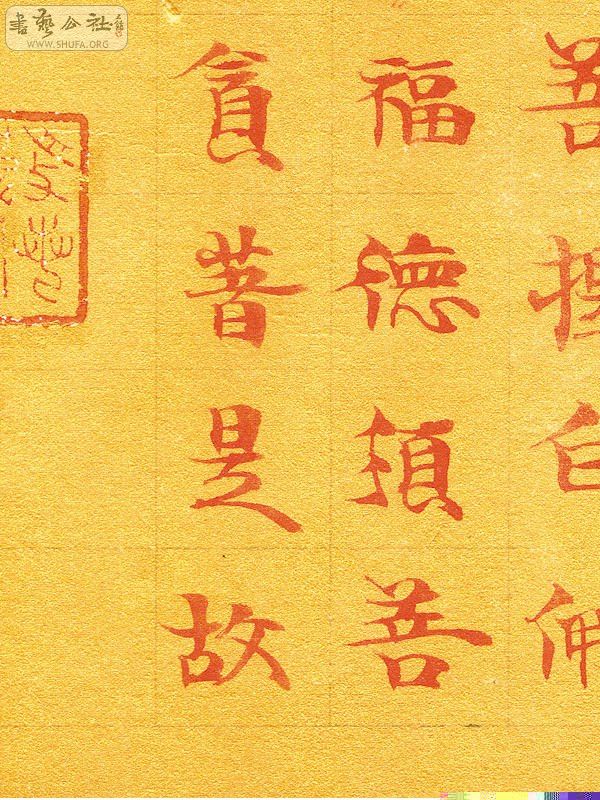 菩提白佛
福德須菩
貪著是故
書藝公社
WWW.SHUFA.ORG